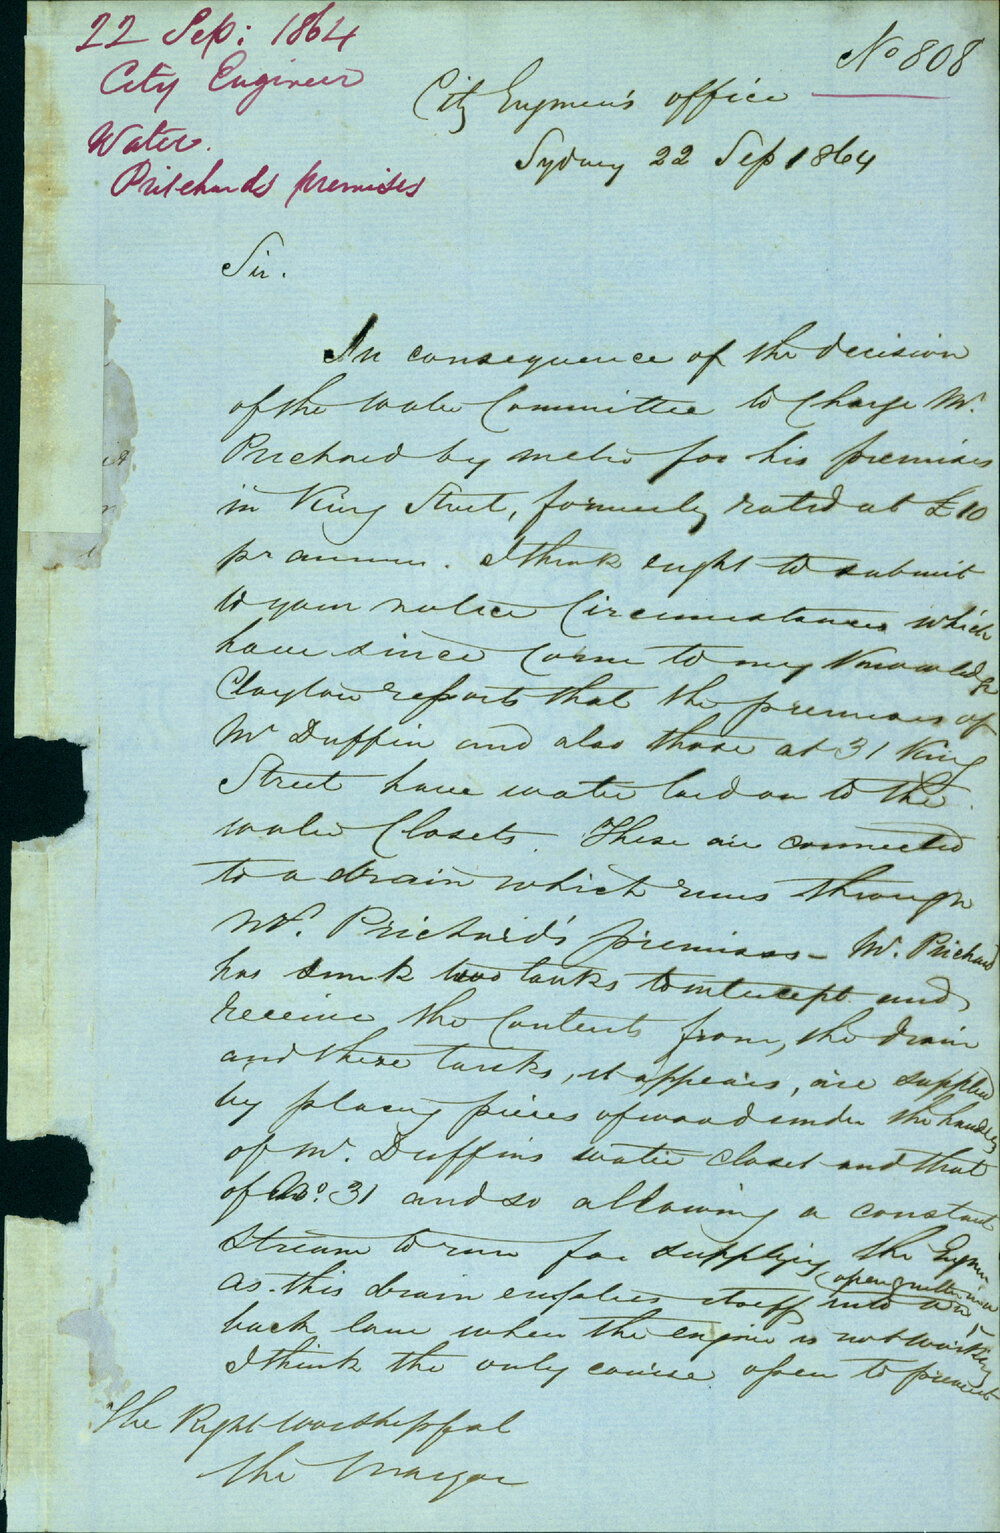 22 Sep: 1864
City Engineer
Water.
Prichards premises
No 808
City Engineer's office
Sydney 22 Sep 1864
Sir.
In consequence of the decision
of the Water Committee to charge Mr.
Prichard by meter for his premises
in King Street, formerly rated at £10
pr annum. I think ought to submit
to your notice circumstances which
have since come to my knowledge
Clayton reports that the premises of
Mr Duffin and also those at 31 King
Street have water laid on to the
water Closets. These are connected
to a drain which runs through
Mr. Prichard's premises - Mr. Prichard
has sunk two tanks to intercept and
receive the contents from, the drain
and these tanks, it appears, are supplied
by placing pieces of wood under the handles
of Mr. Duffins water closet and that
of No. 31 and so allowing a constant
stream to run for supplying the Engine
As this drain empties itself into an open gutter in a
back lane when the engine is not working
I think the only course open to prevent
The Right Worshipful
The Mayor